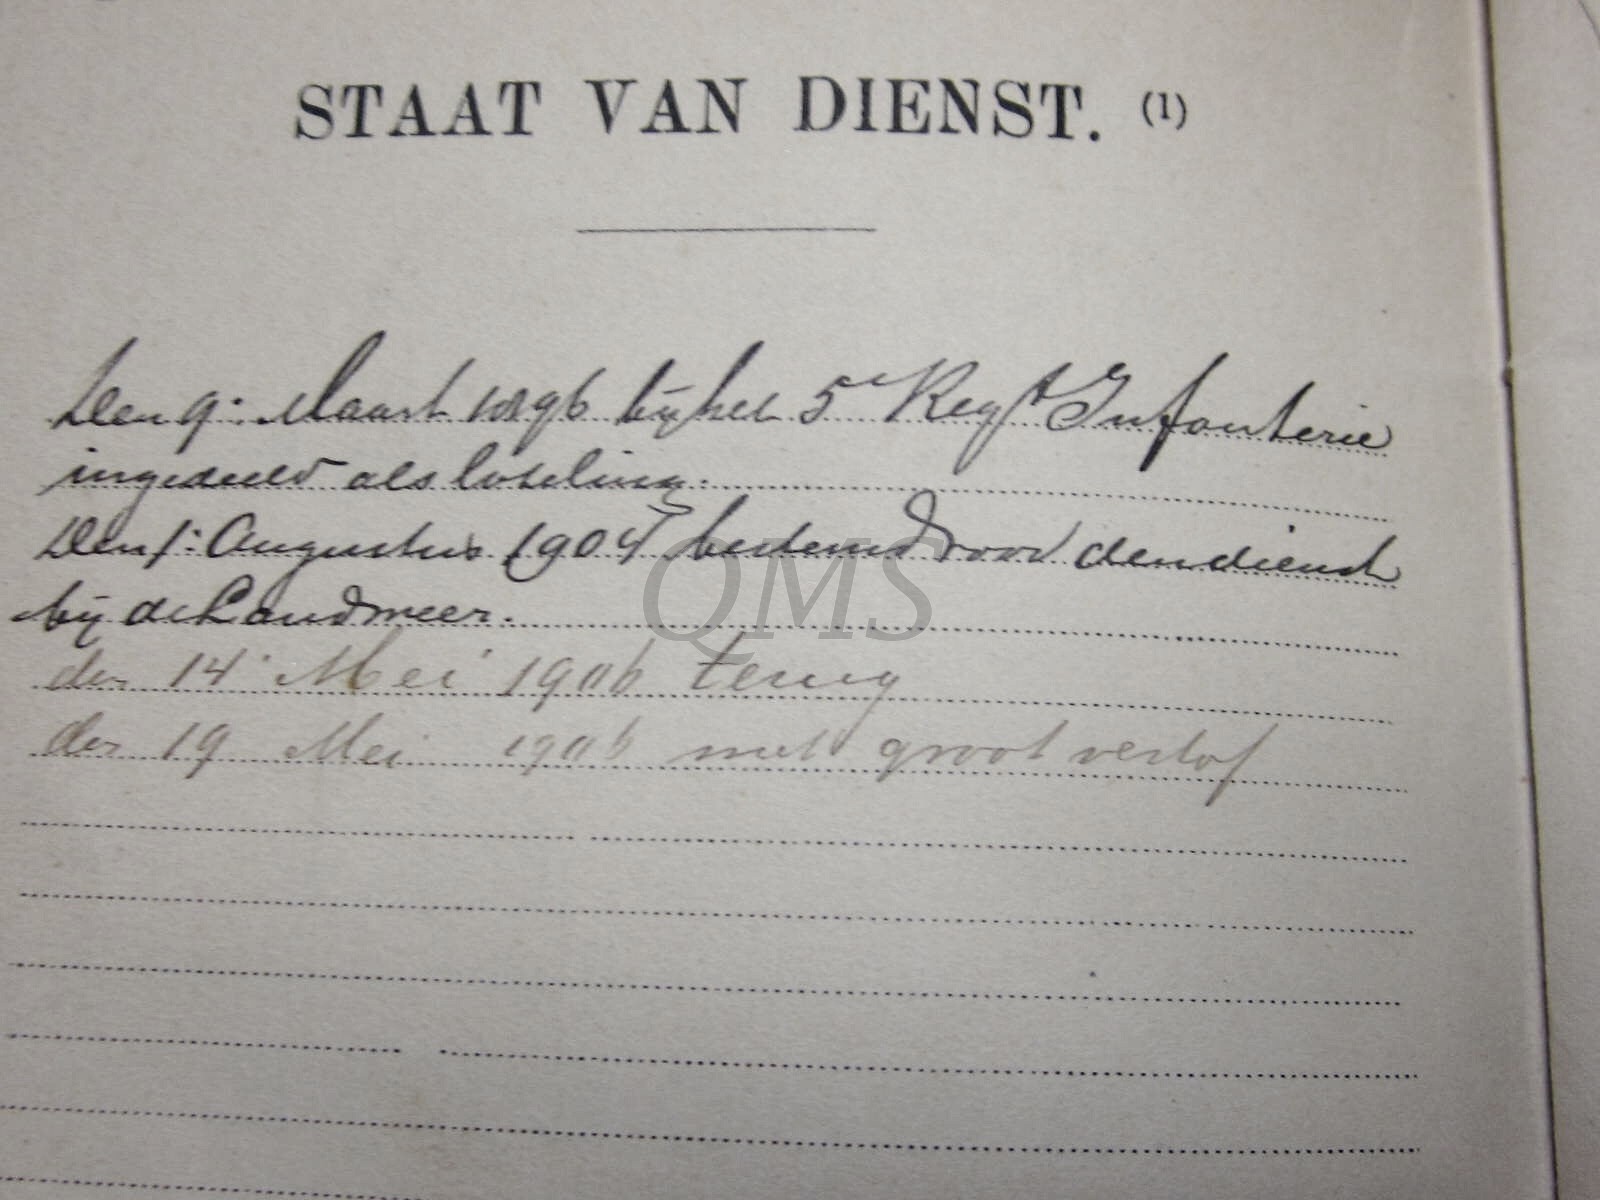 STAAT VAN DIENST. (1)
Den 9: Maart 1896 bij het 5e Regt Infanterie
ingedeeld als loteling.
Den 1: Augustus 1904 bestemd voor den dienst
bij de Landweer.
den 14 Mei 1906 terug
den 19 Mei 1906 met groot verlof
QMS